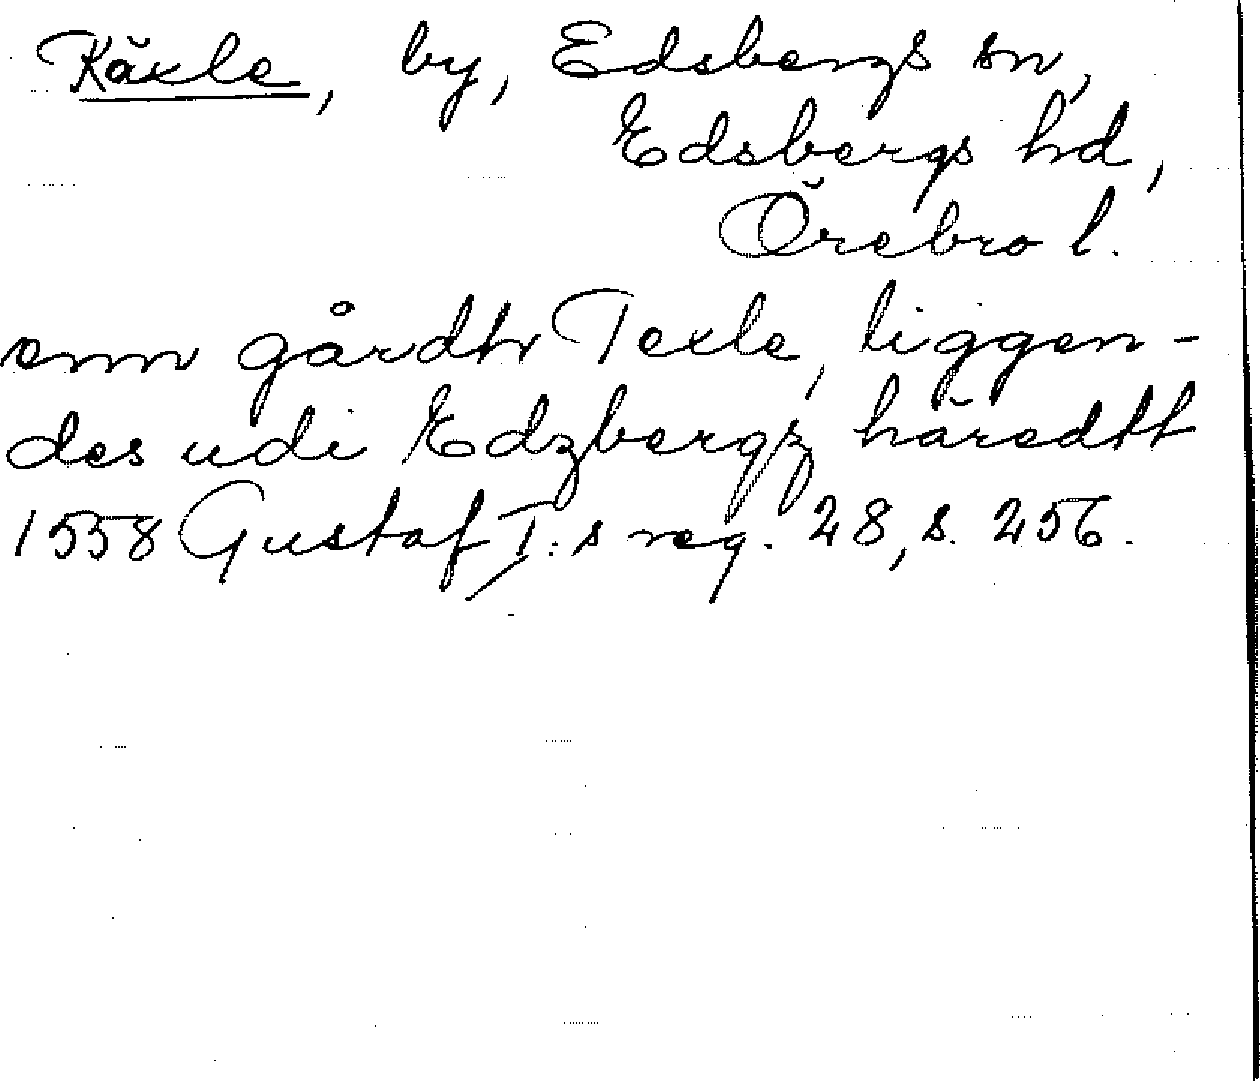 Käxle, by, Edsbergs sn,
Edsbergs hd,
Örebro l.
enn gårdh Texle, liggen-
des udi Edzbergz häredtt
1558 Gustaf I:s reg. 28, s. 256.